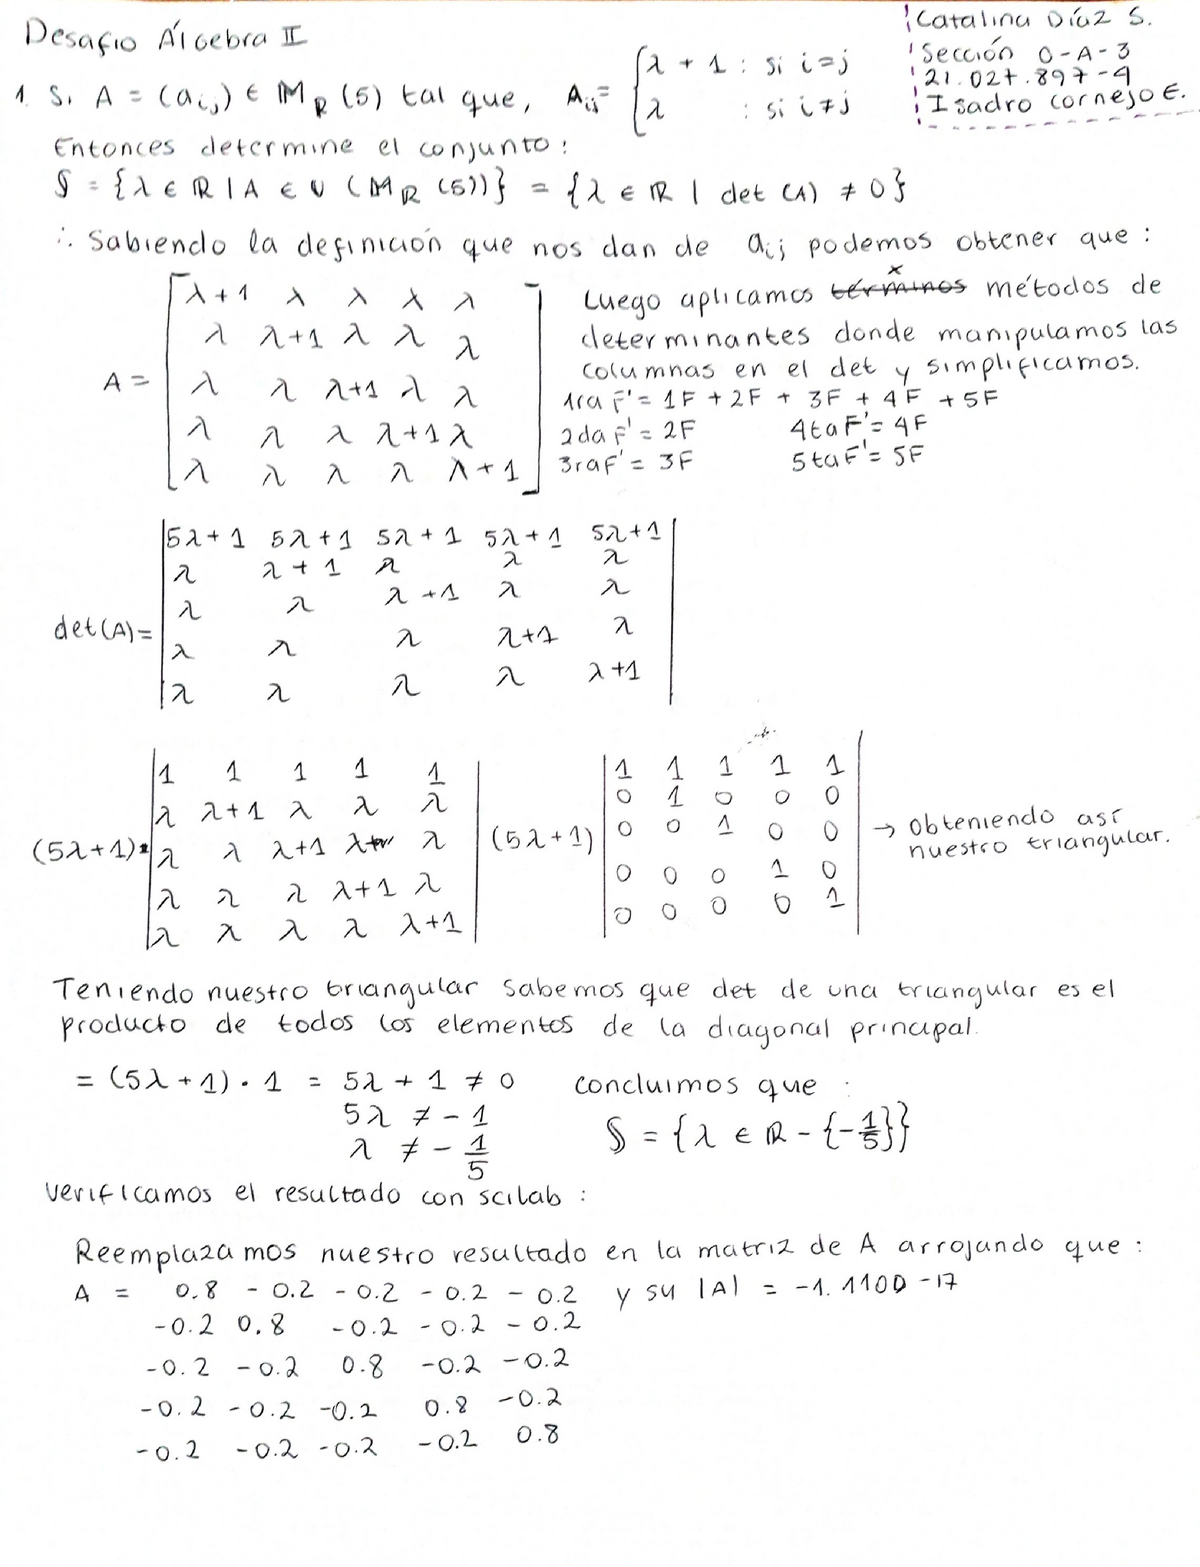 Desafio Álgebra II
Catalina Díaz S.
Sección O-A-3
21.027.897-9
Isadro cornejo E.
1. Si A = (aij) ∈ MR (5) tal que, Aij = { λ + 1 : si i=j
λ : si i≠j
Entonces determine el conjunto:
S = {λ ∈ ℝ | A ∈ U (Mℝ (5))} = {λ ∈ ℝ | det (A) ≠ 0}
∴ Sabiendo la definición que nos dan de aij podemos obtener que:
A =
λ+1 λ λ λ λ
λ λ+1 λ λ λ
λ λ λ+1 λ λ
λ λ λ λ+1 λ
λ λ λ λ λ+1
Luego aplicamos términos métodos de
determinantes donde manipulamos las
columnas en el det y simplificamos.
1ra F' = 1F + 2F + 3F + 4F + 5F
2da F' = 2F 4ta F' = 4F
3ra F' = 3F 5ta F' = 5F
det(A) =
5λ+1 5λ+1 5λ+1 5λ+1 5λ+1
λ λ+1 λ λ λ
λ λ λ+1 λ λ
λ λ λ λ+1 λ
λ λ λ λ λ+1
(5λ+1)•
1 1 1 1 1
λ λ+1 λ λ λ
λ λ λ+1 λ λ
λ λ λ λ+1 λ
λ λ λ λ λ+1
(5λ+1)
1 1 1 1 1
0 1 0 0 0
0 0 1 0 0
0 0 0 1 0
0 0 0 0 1
→ Obteniendo así
nuestro triangular.
Teniendo nuestro triangular sabemos que det de una triangular es el
producto de todos los elementos de la diagonal principal.
= (5λ+1) · 1 = 5λ + 1 ≠ 0
5λ ≠ -1
λ ≠ -1/5
concluimos que :
S = {λ ∈ ℝ - {-1/5}}
Verificamos el resultado con scilab :
Reemplazamos nuestro resultado en la matriz de A arrojando que :
A = 0.8 -0.2 -0.2 -0.2 -0.2 y su |A| = -1.110D-17
-0.2 0.8 -0.2 -0.2 -0.2
-0.2 -0.2 0.8 -0.2 -0.2
-0.2 -0.2 -0.2 0.8 -0.2
-0.2 -0.2 -0.2 -0.2 0.8